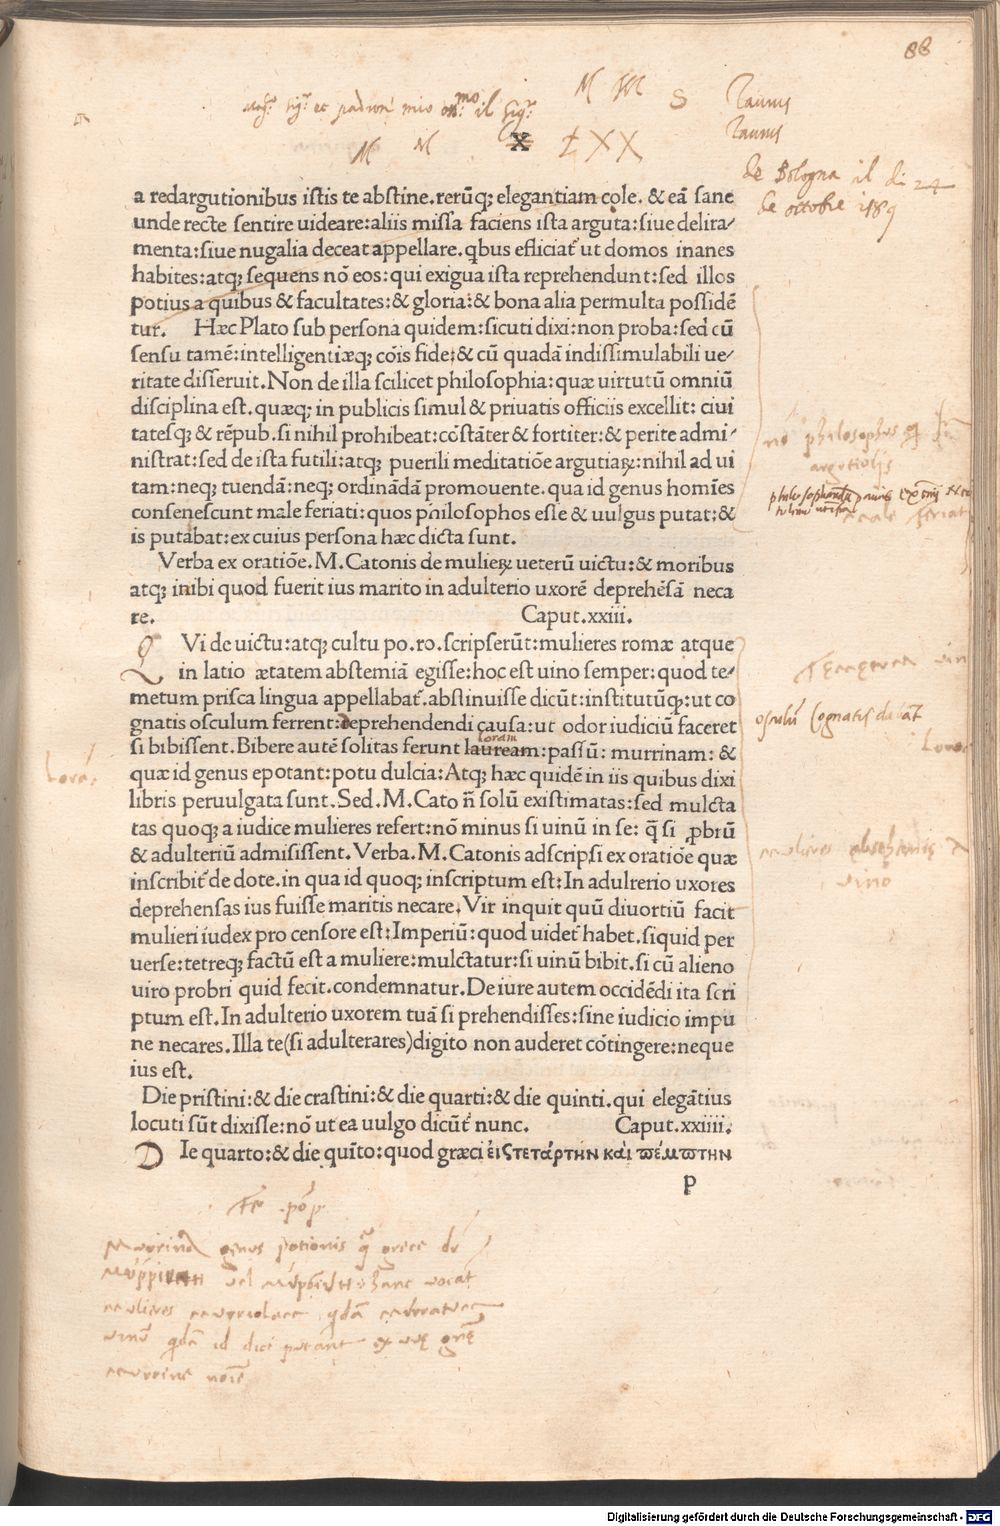 88
M M S Taurus
mio il
M M X LXX Taurus
de Bologna il di 24
de octobre 1589
a redargutionibus istis te abstine.rerūq; elegantiam cole. & eā sane
unde recte sentire uideare:aliis missa faciens ista arguta:siue delira/
menta:siue nugalia deceat appellare.qbus efliciat᷑ ut domos inanes
habites:atq; sequens nō eos:qui exigua ista reprehendunt:sed illos
potius a quibus & facultates:& gloria:& bona alia permulta possidē
tur. Hæc Plato sub persona quidem:sicuti dixi:non proba:sed cū
sensu tamē:intelligentiæq; cōis fide:& cū quadā indissimulabili ue/
ritate disseruit.Non de illa scilicet philosophia:quæ uirtutū omniū
disciplina est.quæq; in publicis simul & priuatis officiis excellit: ciui
tatesq; & rēpub.si nihil prohibeat:cōstāter & fortiter:& perite admi/
nistrat:sed de ista futili:atq; puerili meditatiōe argutiaꝝ:nihil ad ui
tam:neq; tuendā:neq; ordinādā promouente.qua id genus homīes
consenescunt male feriati:quos philosophos esse & uulgus putat:&
is putabat:ex cuius persona hæc dicta sunt.
nō philosophus
argutiolis
male feriati
Verba ex oratiōe.M.Catonis de mulieꝝ ueterū uictu:& moribus
atq; inibi quod fuerit ius marito in adulterio uxorē deprehēsā neca
re. Caput.xxiii.
Q Vi de uictu:atq; cultu po.ro.scripserūt:mulieres romæ atque
in latio ætatem abstemiā egisse:hoc est uino semper:quod te/
metum prisca lingua appellabat᷑.abstinuisse dicūt:institutūq;:ut co
gnatis osculum ferrent:deprehendendi causa:ut odor iudiciū faceret
loram
si bibissent.Bibere autē solitas ferunt lauream:passū: murrinam: &
quæ id genus epotant:potu dulcia:Atq; hæc quidē in iis quibus dixi
libris peruulgata sunt.Sed.M.Cato ñ solū existimatas:sed mulcta
tas quoq; a iudice mulieres refert:nō minus si uinū in se: q̄ si ꝓbrū
& adulteriū admisissent.Verba.M.Catonis adscripsi ex oratiōe quæ
inscribit᷑ de dote.in qua id quoq; inscriptum est:In adulrerio uxores
deprehensas ius fuisse maritis necare.Vir inquit quū diuortiū facit
mulieri iudex pro censore est:Imperiū:quod uidet᷑ habet.siquid per
uerse:tetreq; factū est a muliere:mulctatur:si uinū bibit.si cū alieno
uiro probri quid fecit.condemnatur.De iure autem occidēdi ita scri
ptum est.In adulterio uxorem tuā si prehendisses:sine iudicio impu
ne necares.Illa te(si adulterares)digito non auderet cōtingere:neque
ius est.
osculū Cognatis dabāt
Lora
Lorā
mulieres abstemię a
uino
Die pristini:& die crastini:& die quarti:& die quinti.qui elegātius
locuti sūt dixisse:nō ut ea uulgo dicūt᷑ nunc. Caput.xxiiii.
D Ie quarto:& die quīto:quod græci εἰςτετάρτην κὰι πέμπτην
p
Murrina genus potionis grece
uel uocat
mulieres
uinū id dici putant ex uuę
murrine noīe
Digitalisierung gefördert durch die Deutsche Forschungsgemeinschaft - DFG